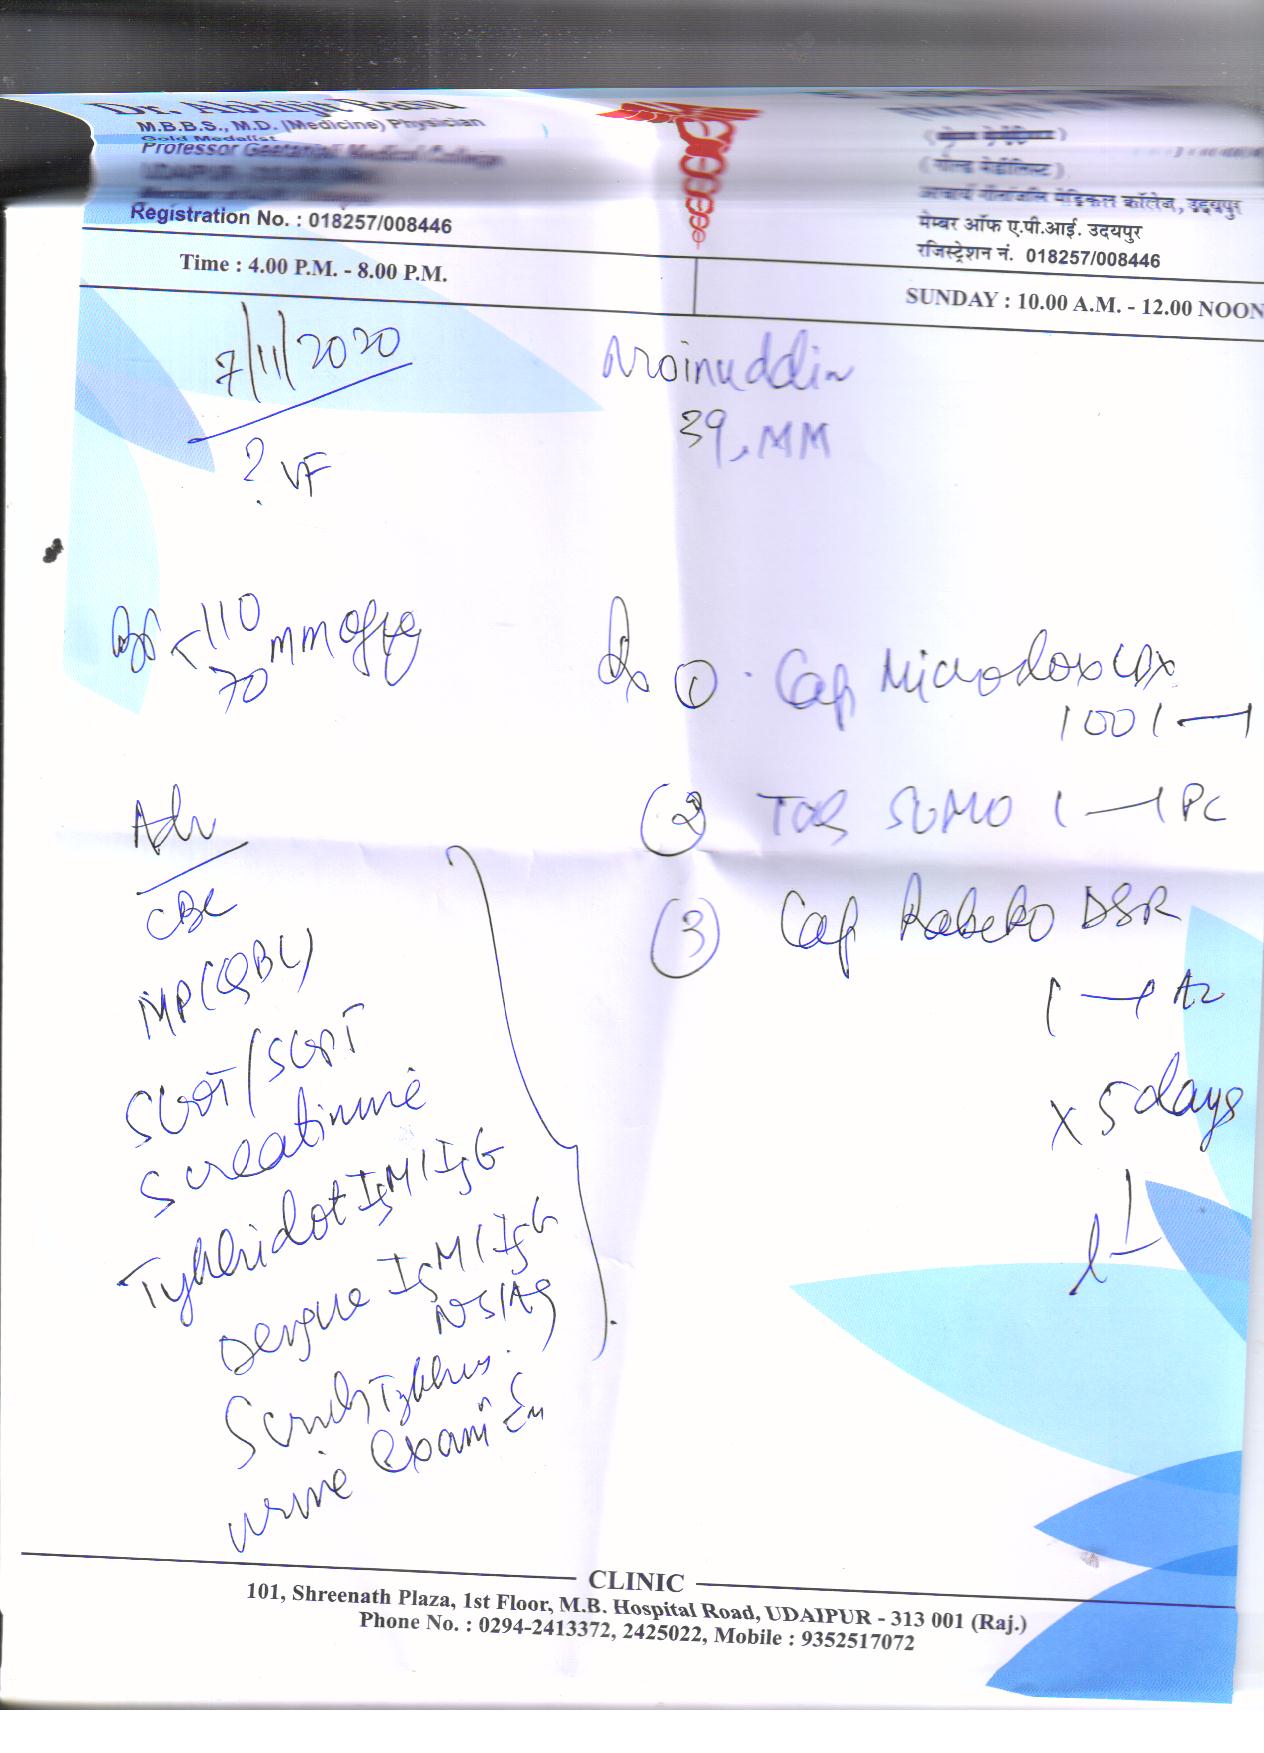 M.B.B.S., M.D. (Medicine) Physician
Gold Medalist
Professor Geetanjali Medical College
UDAIPUR
Registration No. : 018257/008446
(गोल्ड मेडीलिस्ट)
आचार्य गीतांजलि मेडिकल कॉलेज, उदयपुर
मेम्बर ऑफ ए.पी.आई. उदयपुर
रजिस्ट्रेशन नं. 018257/008446
Time : 4.00 P.M. - 8.00 P.M.
SUNDAY : 10.00 A.M. - 12.00 NOON
7/11/2020
Moinuddin
39, MM
? VF
110
70 mmofHg
Rx ① Cap Microdox LBX
100 1—1
② TAB SUMO 1—1 PC
③ Cap Rabeko DSR
1—1 AC
x 5 days
Adv
CBC
MP(QBC)
SGOT/SGPT
S creatinine
Typhidot IgM/IgG
Dengue IgM/IgG
NS1Ag
Scrub Typhus
Urine Exam
CLINIC
101, Shreenath Plaza, 1st Floor, M.B. Hospital Road, UDAIPUR - 313 001 (Raj.)
Phone No. : 0294-2413372, 2425022, Mobile : 9352517072